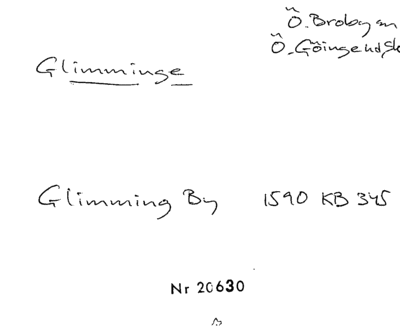 Ö. Broby sn
Ö. Göinge hd
Glimminge
Glimming By 1590 KB 345
Nr 20630